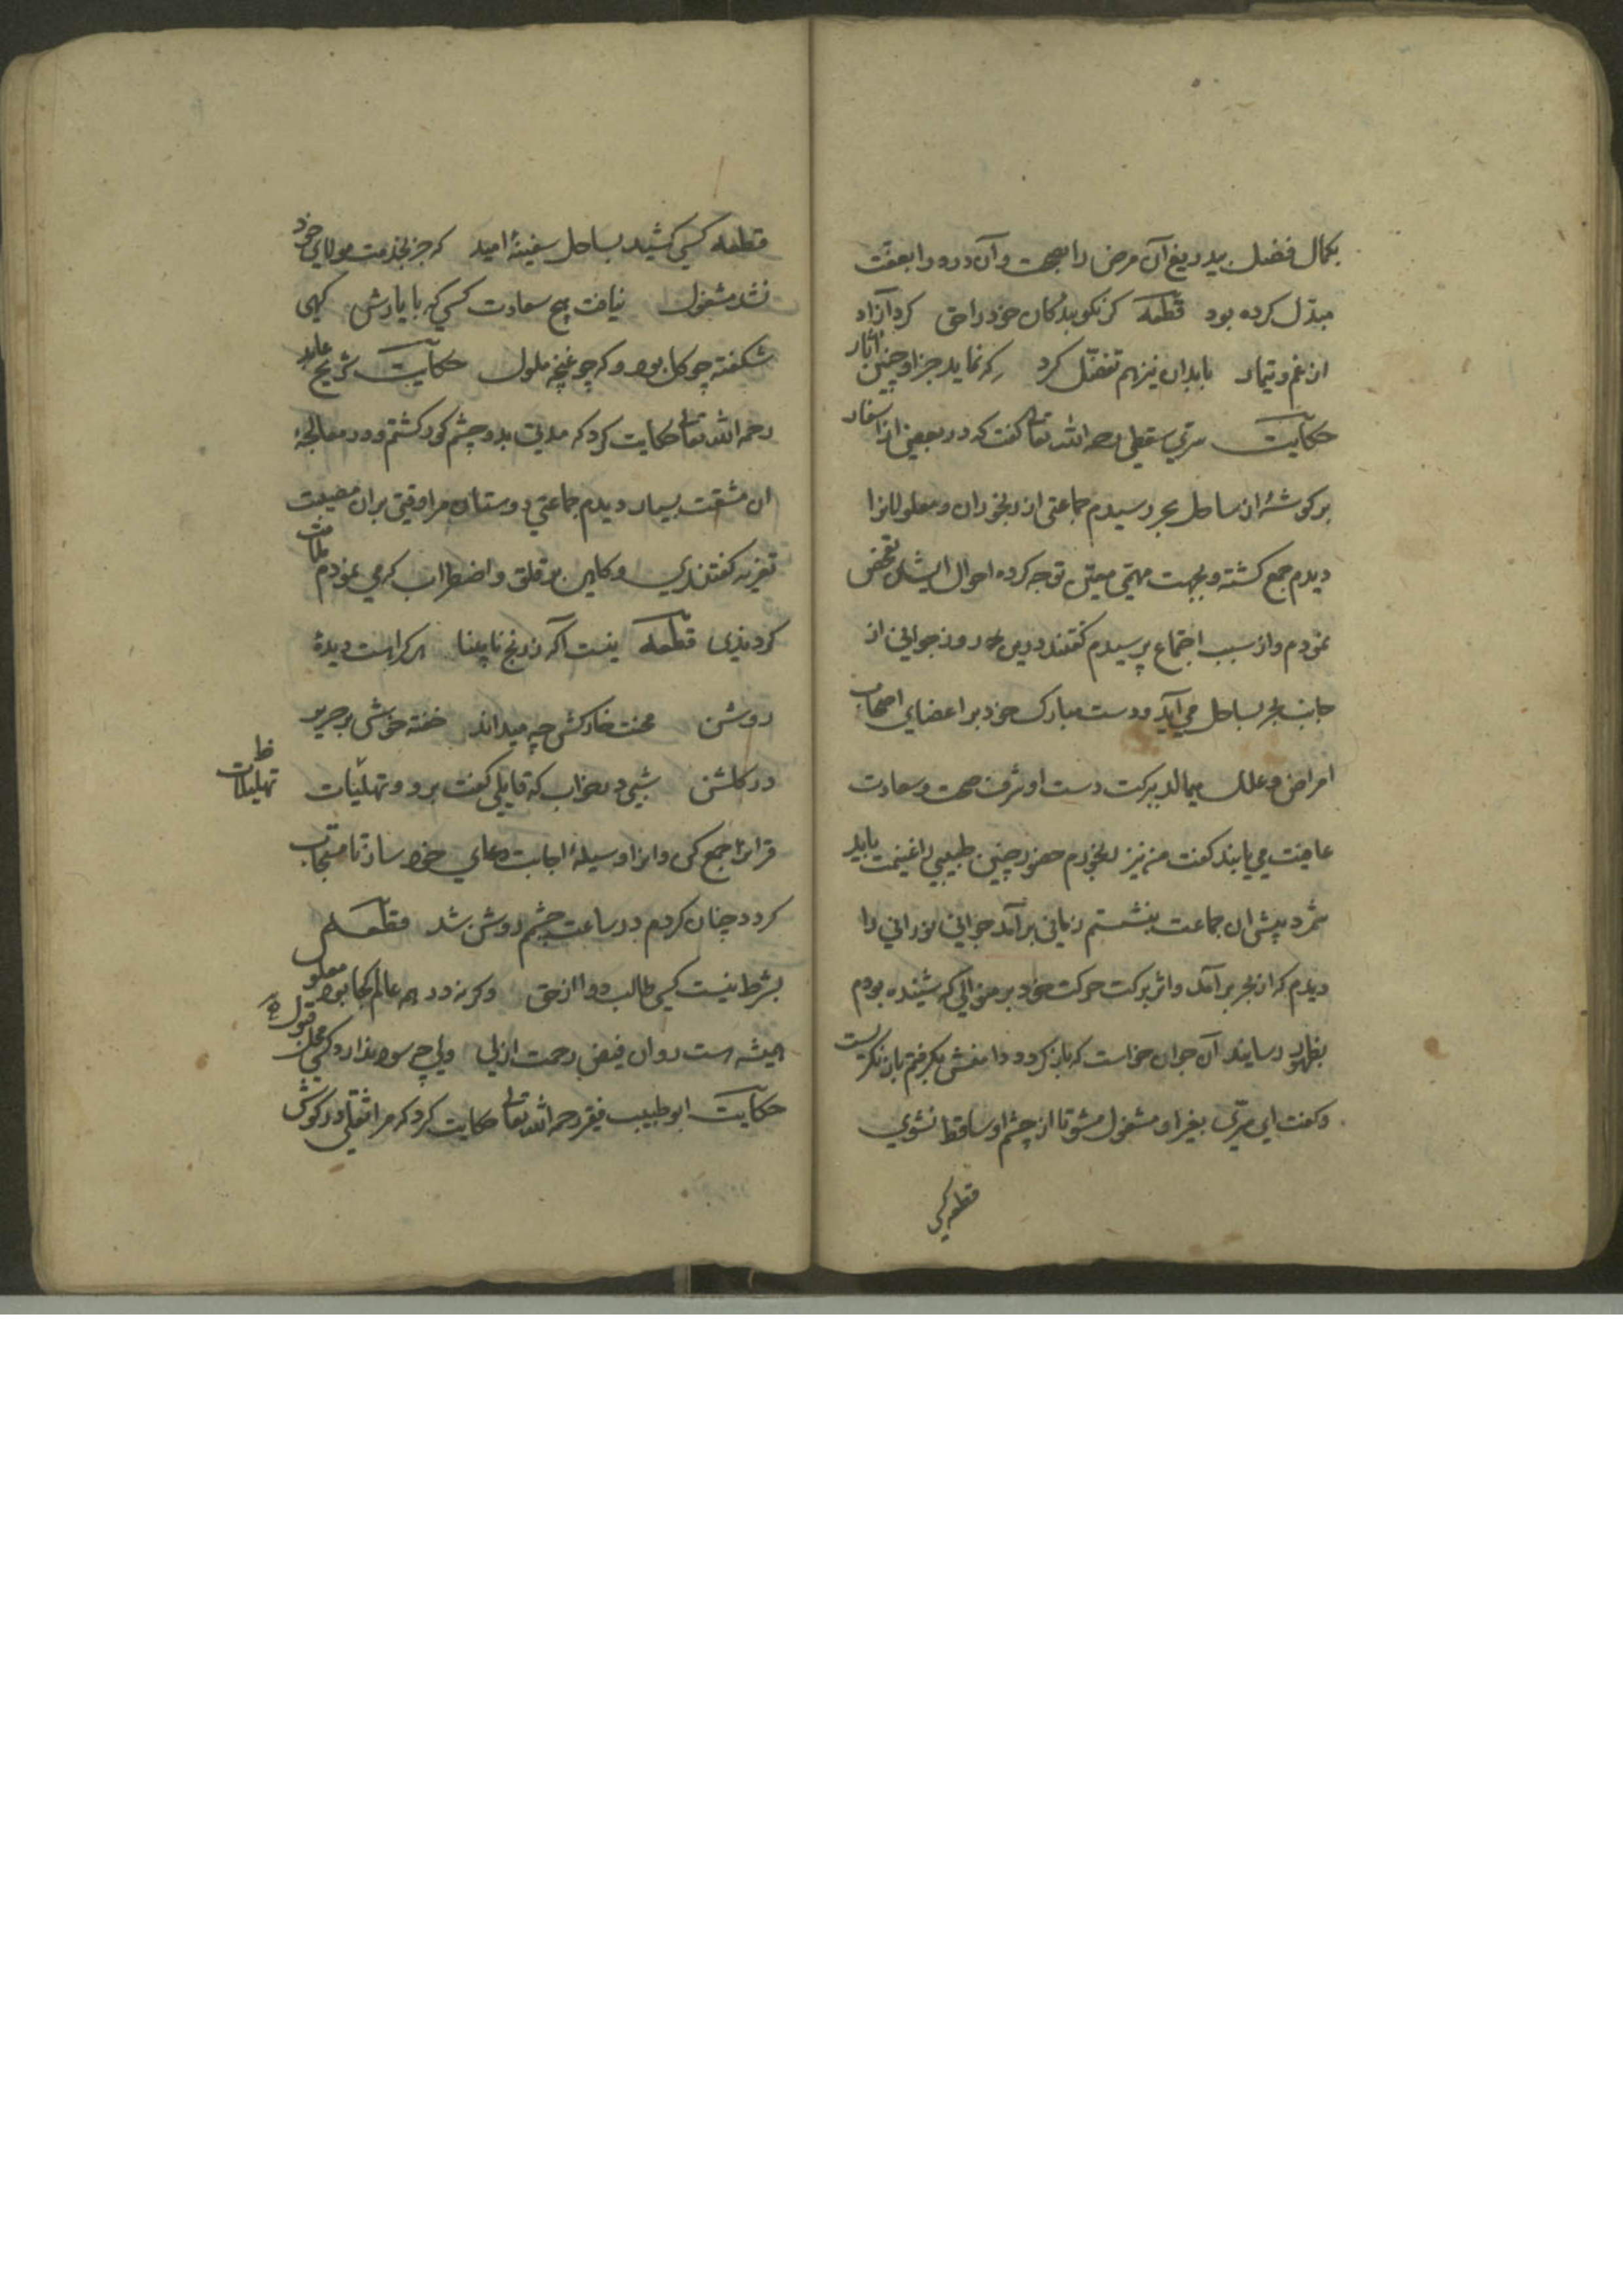 بکمال فضل بیدریغ آن مرض را بصحت و آن درد را بعفت
مبدل کرده بود قطعه کر نکو بندکان خود را حق کرد آزاد
از غم و تیمار بابدان نیز هم تفضل کرد که نماید جز او چنین آثار
حکایت سری سقطی رحمه الله تعالی کفت که در بعضی از اسفار
بر کوشهٔ از ساحل بحر رسیدم جماعتی از رنجوران و معلولانرا
دیدم جمع کشته و بجهت مهمی معین توجه کرده احوال ایشان تفحص
نمودم و از سبب اجتماع پرسیدم کفتند درین روز جوانی از
جانب بحر بساحل می آید و دست مبارک خود بر اعضای اصحاب
امراض و علل میمالد ببرکت دست او شرف صحت و سعادت
عافیت می یابند کفت من نیز رنجورم حضور چنین طبیبی را غنیمت باید
شمرد پیش ان جماعت بنشستم زمانی برآمد جوانی نورانی را
دیدم که از بحر برآمد و اثر برکت حرکت خود بر منوالی که شنیده بودم
بظهور رسانید آن جوان خواست که باز کردد دامنش بکرفتم باز نکریست
و کفت ای سری بغیر او مشغول مشو تا از چشم او ساقط نشوی
قطعه کسی
قطعه کسی کشید بساحل سفینهٔ امید که جز بخدمت مولای خود
نشد مشغول نیافت هیچ سعادت کسی که با یارش کهی
شکفته چو کل بود و که چو غنچه ملول حکایت شریح عابد
رحمه الله تعالی حکایت کرد که مدتی بدو چشم کور کشتم و در معالجهٔ
ان مشقت بسیار دیدم جماعتی دوستان مرا وقتی بران مصیبت
تعزیه کفتندی و کاهی بر قلق و اضطراب که می نمودم ملامت
کردندی قطعه نیست آکه ز رنج نابینا هر کرا هست دیدهٔ
روشن محنت خارکش چه میداند خفته خوش بر حریر
در کلشن شبی در خواب که قایلی کفت برو و تهلیلات
ظ تهلیلات
قرانرا جمع کن و انرا وسیلهٔ اجابت دعای خود ساز تا مستجاب
کردد چنان کردم در ساعت چشم روشن شد قطعه
بشرط نیست کسی طالب دوا از حق وکرنه درد همه عالم کجا بود معلول
همیشه هست روان فیض رحمت ازلی ولی چه سود ندارد کسی محل قبول
حکایت ابو طبیب فقیر رحمه الله تعالی حکایت کرد که مرا ثقلی در کوش